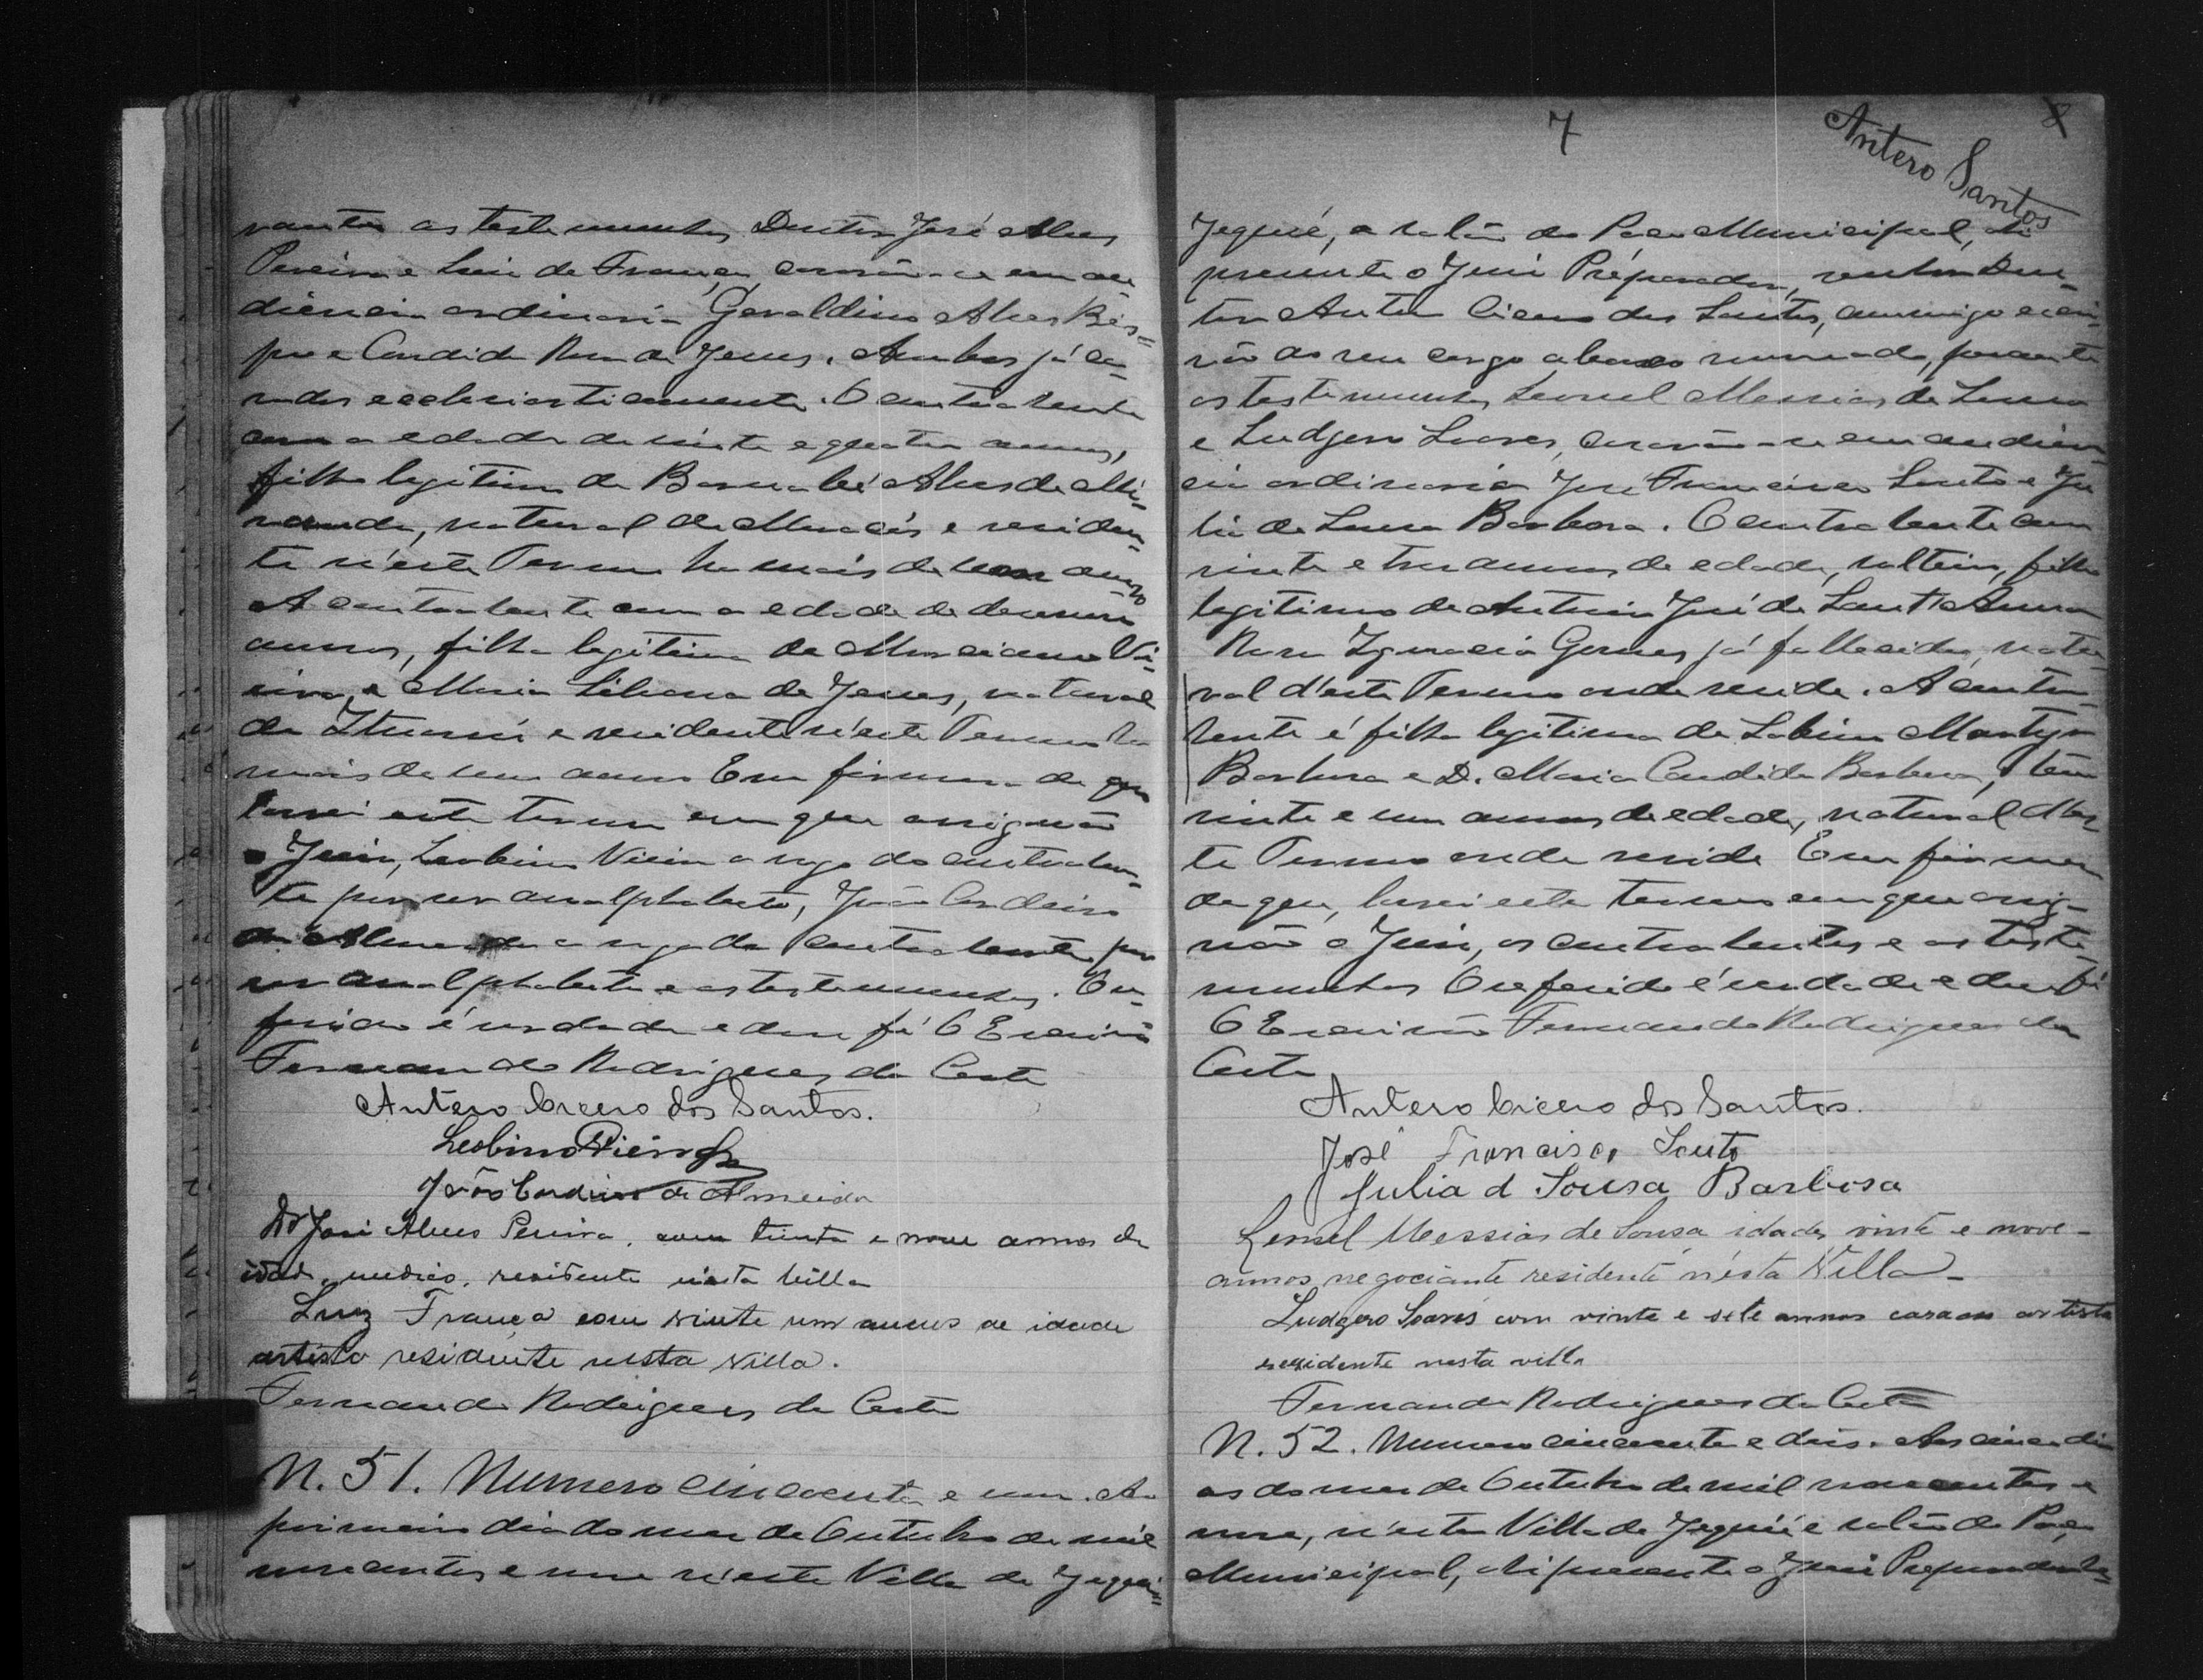 as testemunhas Doutor José Alves
Pereira e Luiz de França, casarão-se em au-
diencia ordinaria Geraldino Alves Bis-
po e Candida Rosa de Jesus. Ambos já ca-
sados ecclesiasticamente. O contratante
com a edade de vinte e quatro annos,
filho legitimo de Barnabé Alves de Mi-
randa, natural de Maracás e residen-
te n'este Termo ha mais de um anno
A contratante com a edade de desenove
annos, filha legitima de Marciano Vi-
eira e Maria Libana de Jesus, natural
de e residente n'este Termo ha
mais de um anno Em firmesa do que
lavrei este termo em que assignão
o Juiz, Leobino Vieira a rogo do contratan-
te por ser analphabeto, João Cordeiro
de Almeida a rogo da contratante por
ser analphabeta e as testemunhas. O re-
ferido é verdade e dou fé O Escrivão
Fernando Rodrigues da Costa
Antero Cicero dos Santos.
Leobino Vieira
João Cordeiro de Almeida
Dr José Alves Pereira, com trinta e nove annos de
idade, medico, residente nésta Villa
Luiz França com vinte um annos de idade
artista residente nesta villa.
Fernando Rodrigues da Costa
N. 51. Numero cincoenta e um. Ao
primeiro dia do mez de Outubro de mil
novecentos e nove n'esta Villa de Jequié
7
Antero Santos
8
Jequié, e salão do Paço Municipal, ahi
presente o Juiz Préparador, senhor Dou-
tor Antero Cicero dos Santos, commigo escri-
vão do seu cargo abaixo nomeado, perante
as testemunhas Leonel Messias de Sousa
e Ludgero Soares, casarão-se em audien-
cia ordinaria José Francisco Souto e Ju
lia de Sousa Barbosa. O contratante com
vinte e tres annos de edade, solteiro, filho
legitimo de Antonio José de Sant'Anna
Rosa Ignacia Gomes já fallecida, natu-
ral d'este Termo onde reside. A contra-
tante é filha legitima de Sabino Martyr
Barbosa e D. Maria Candida Barbosa, tem
vinte e um annos de edade, natural d'es
te Termo onde reside Em firmesa
do que, lavrei este termo em que assig-
não o Juiz, os contratantes e as teste-
munhas O referido é verdade e dou fé
O Escrivão Fernando Rodrigues da
Costa
Antero Cicero dos Santos.
José Francisco Souto
Julia d Sousa Barbosa
Leonel Messias de Sousa idade vinte e nove-
annos negociante residente nésta Villa-
Ludgero Soares com vinte e sete annos casado artista
residente nesta villa
Fernando Rodrigues da Costa
N. 52. Numero cincoenta e dois. Aos cinco di
as do mez de Outubro de mil novecentos e
nove, n'esta Villa de Jequié e salão do Paço
Municipal, ahi presente o Juiz Preparador